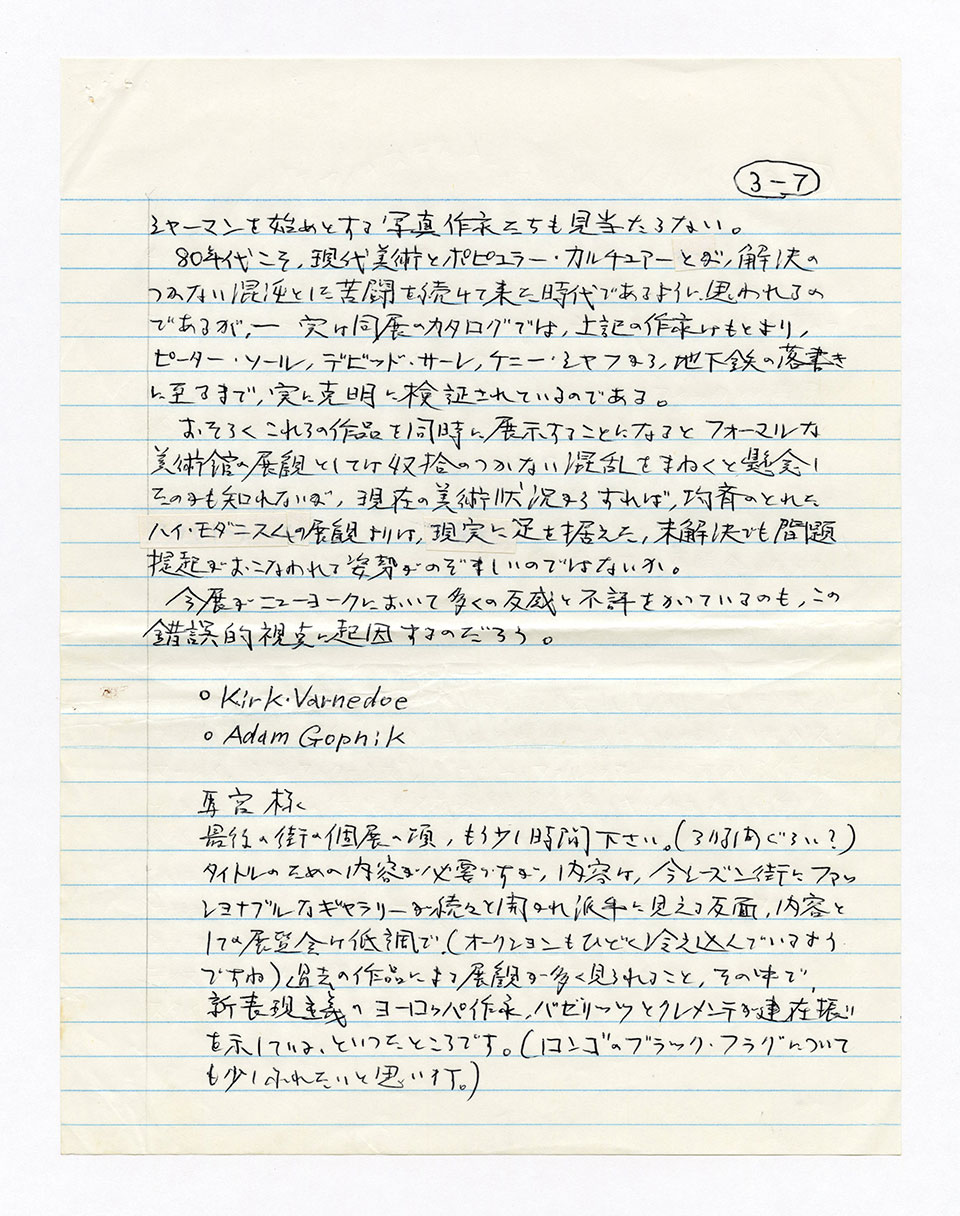 3-7
シャーマンを始めとする写真作家たちも見当たらない。
80年代こそ、現代美術とポピュラー・カルチュアーとが、解決の
つかない混沌とした苦闘を続けて来た時代であるように思われるの
であるが、一 実は同展のカタログでは、上記の作家はもとより、
ピーター・ソール、デビッド・サーレ、ケニー・シャフから、地下鉄の落書き
に至るまで、実に克明に検証されているのである。
おそらくこれらの作品を同時に展示することになるとフォーマルな
美術館の展観としては収拾のつかない混乱をまねくと懸念し
たのかも知れないが、現在の美術状況からすれば、均斉のとれた
ハイ・モダニズムの展観よりは、現実に足を据えた、未解決でも問題
提起がおこなわれて姿勢がのぞましいのではないか。
今展がニューヨークにおいて多くの反感と不評をかっているのも、この
錯誤的視点に起因するのだろう。
○ Kirk・Varnedoe
○ Adam Gopnik
宮様
最後の街の個展の項、もう少し時間下さい。(3行ぐらい?)
タイトルのための内容が必要ですが、内容は、今シーズン街にファッ
ショナブルなギャラリーが続々と開かれ派手に見える反面、内容と
しての展覧会は低調で、(オークションもひどく冷え込んでいるよう
ですね)過去の作品による展観が多く見られること、その中で
新表現主義のヨーロッパ作家、バゼリッツとクレメンテが健在振り
を示している、といったところです。(ロンゴのブラック・フラグについて
も少しふれたいと思います。)